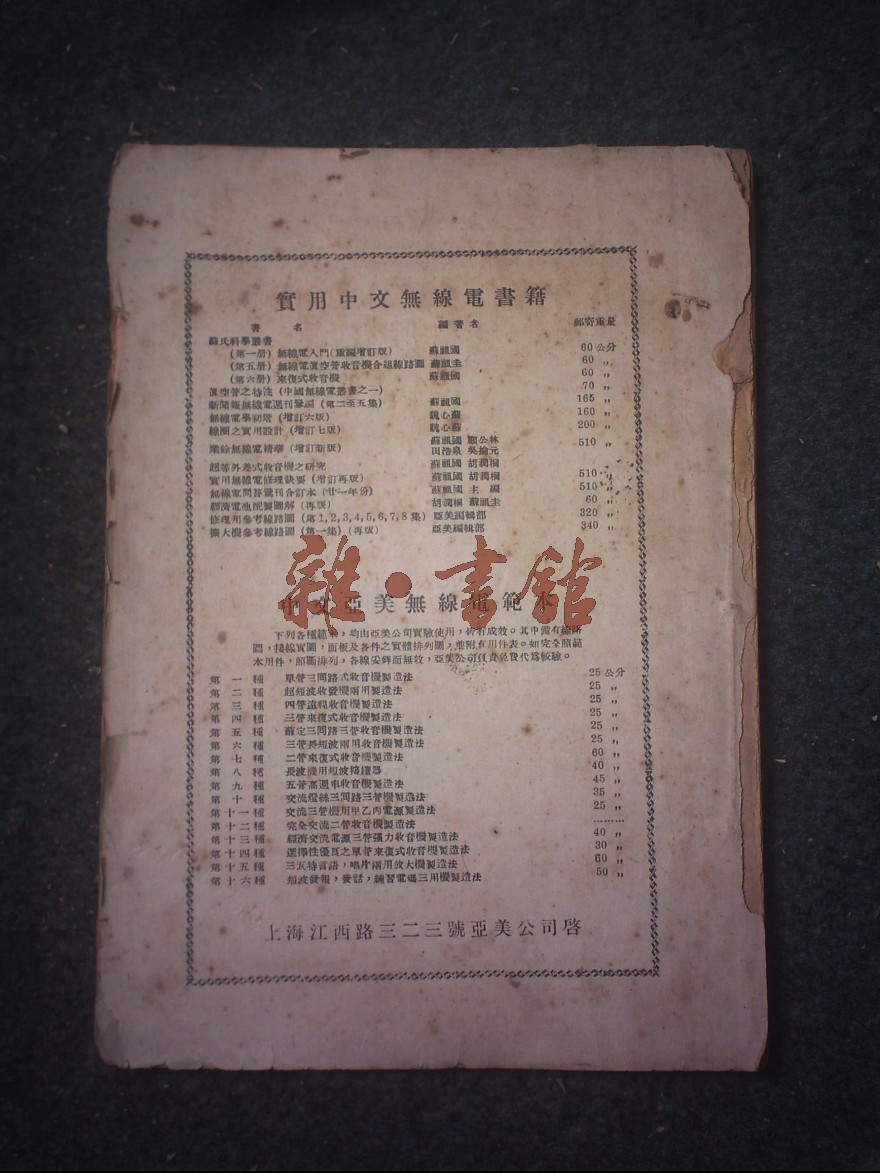 實用中文無線電書籍
書 名 編著者 郵寄重量
蘇氏科學叢書
(第一册) 無線電入門(重編增訂版) 蘇祖國 60 公分
(第五册) 無線電眞空管收音機合組線路圖 蘇祖圭 60 〃
(第六册) 來復式收音機 蘇祖國 60 〃
眞空管之特性(中國無線電叢書之一) 70 〃
新聞報無線電週刊彙編(第二至五集) 蘇祖國 165 〃
無線電學初階(增訂六版) 魏心蘇 160 〃
線圈之實用設計(增訂七版) 魏心蘇 200 〃
蘇祖國 公林
業餘無線電精華(增訂新版) 田浩泉 吳掄元 510 〃
超等外差式收音機之研究 蘇祖國 胡潤桐
實用無線電修理訣要(增訂再版) 蘇祖國 胡潤桐 510 〃
無線電問答彙刊合訂本(廿一年份) 蘇祖國 主編 510 〃
經濟電池配製圖解(再版) 胡潤桐 蘇祖圭 60 〃
修理用參考線路圖(第1,2,3,4,5,6,7,8集) 亞美編輯部 320 〃
擴大機參考線路圖(第一集)(再版) 亞美編輯部 340 〃
雜·書館
中文亞美無線電範本
下列各種範本,均由亞美公司實驗使用,皆有成效。其中備有線路
圖,接線實圖,面板及各件之實體排列圖,並附有用件表。如完全照範
本用件,照圖排列,各線妥銲而無效,亞美公司負責免費代爲校驗。
第一種 單管三回路式收音機製造法 25 公分
第二種 超短波收發機兩用製造法 25 〃
第三種 四管遠程收音機製造法 25 〃
第四種 三管來復式收音機製造法 25 〃
第五種 蘇定三回路三管收音機製造法 25 〃
第六種 三管長短波兩用收音機製造法 25 〃
第七種 二管來復式收音機製造法 60 〃
第八種 長波機用短波接續器 40 〃
第九種 五管高週率收音機製造法 45 〃
第十種 交流燈絲三回路三管機製造法 35 〃
第十一種 交流三管機用甲乙丙電源製造法 25 〃
第十二種 完全交流二管收音機製造法 ………
第十三種 經濟交流電源三管强力收音機製造法 40 〃
第十四種 選擇性優良之單管來復式收音機製造法 30 〃
第十五種 三五特言語,唱片兩用放大機製造法 60 〃
第十六種 短波發報,發話,練習電碼三用機製造法 50 〃
上海江西路三二三號亞美公司啓